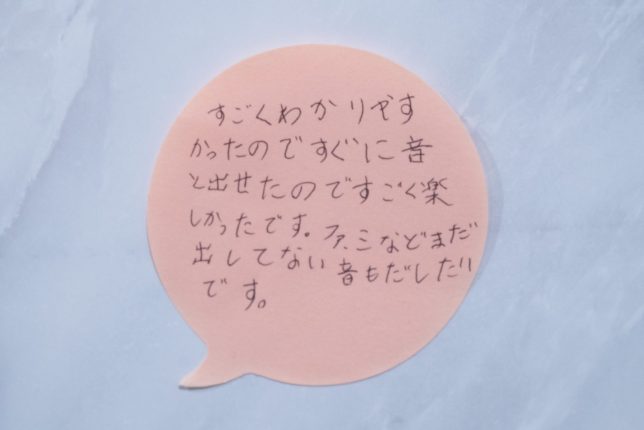 すごくわかりやす
かったのですぐに音
と出せたのですごく楽
しかったです。ファ、ミなどまだ
出してない音もだしたい
です。